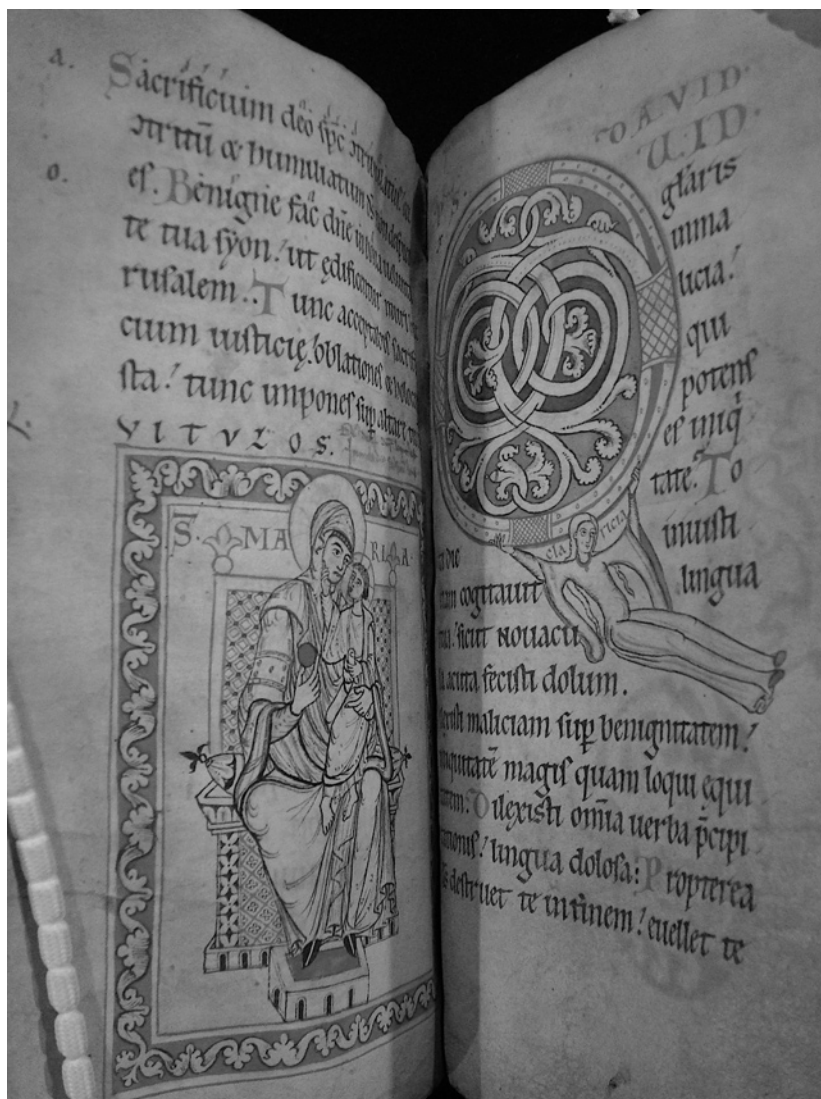 a.
Sacrificium deo sp̄c
trítū & humiliatum
o.
es. Benigne fac dn̄e in bona uoluntate
te tua syon! ut ędificentur muri
rusalem. Tunc acceptabis sacrifi
cium iusticię! oblationes & holo
sta! tunc impones sup altare
VITVLOS.
S. MA RIA
DAVID.
U. ID.
glaris
inma
licia!
qui
potens
es iniq̇
tate. To
inuisti
lingua
cla ricia
cogitauit
tua. sicut nouacu
la acuta fecisti dolum.
maliciam sup benignitatem!
iniquitatē magis quam loqui ęqui
tatem: Dilexisti om̄ia uerba p̄cipi
tationis! lingua dolosa: Propterea
destruet te infinem! euellet te